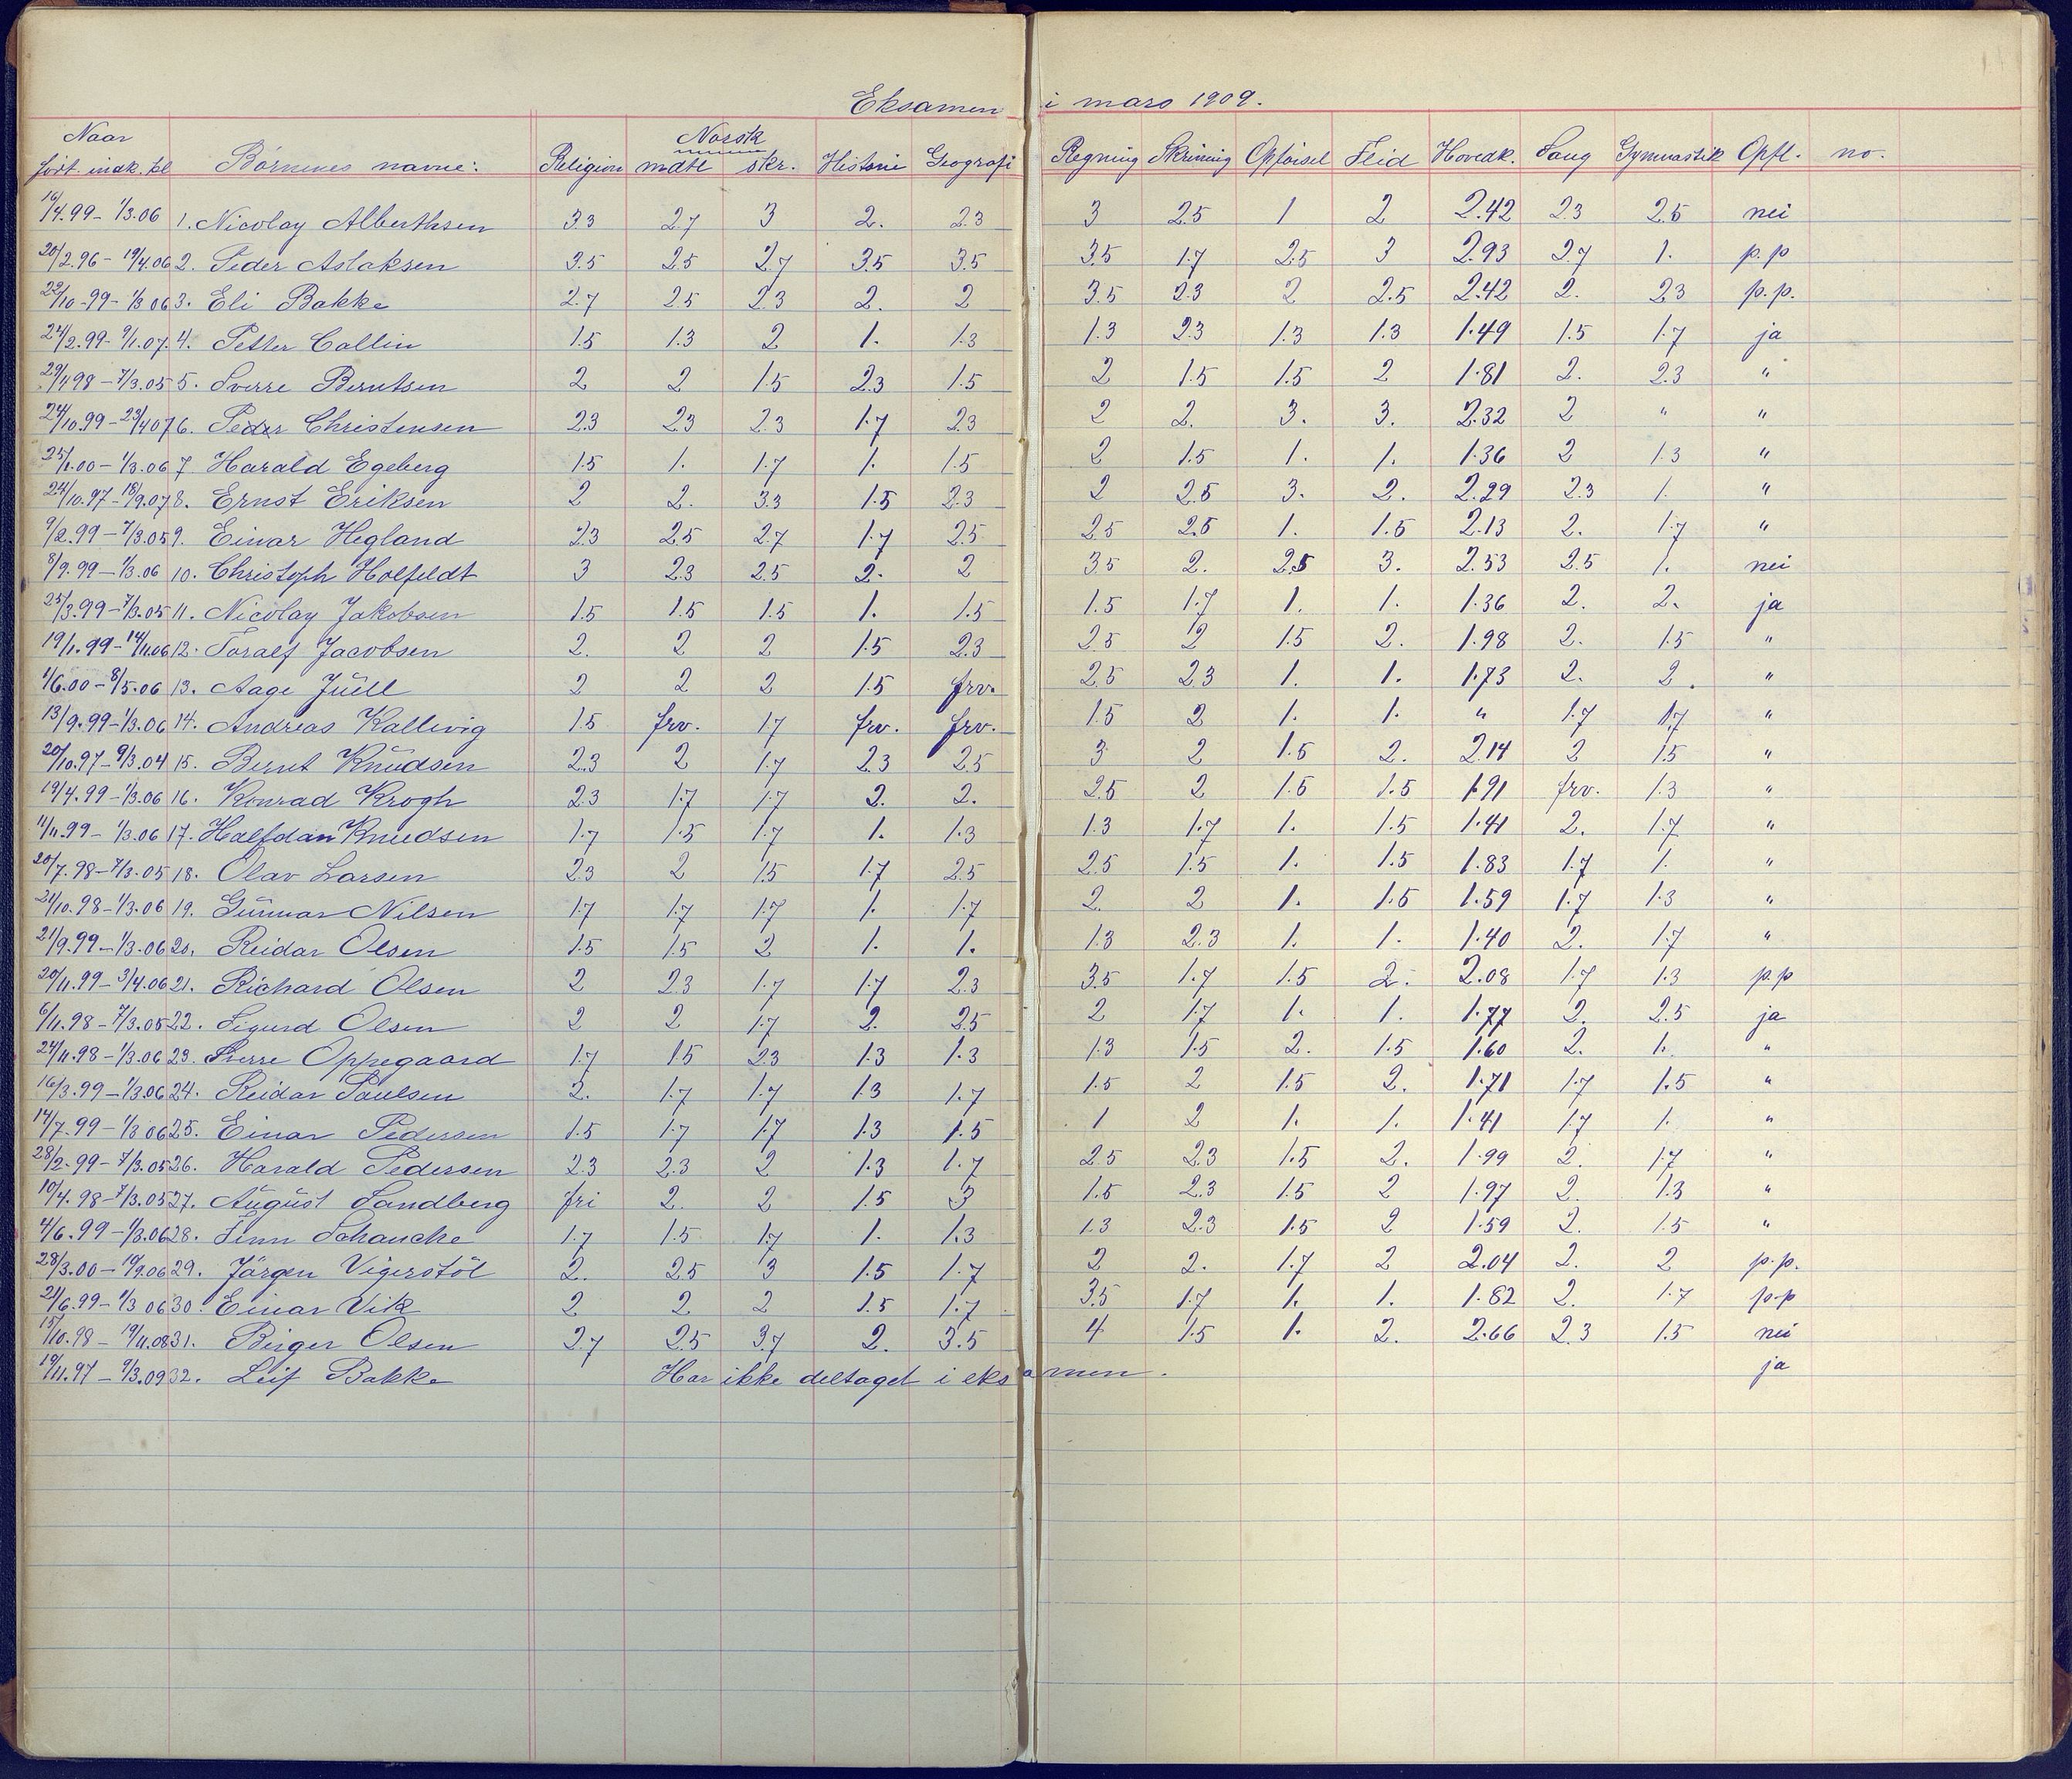 Eksamen i mars 1909.
Naar Norsk
født. indk. pl Børnenes navne: Religion mdtl skr. Historie Geografi Regning Skrivning Opførsel Flid Hovedk. Sang Gymnastik Opfl. no.
16/4.99 – 1/3.06 1. Nicolay Alberthsen 3.3 2.7 3 2. 2.3 3 2.5 1 2 2.42 2.3 2.5 nei
20/2.96 – 19/4.06 2. Peder Aslaksen 3.5 2.5 2.7 3.5 3.5 3.5 1.7 2.5 3 2.93 2.7 1. p.p
22/10-99 – 1/3 06 3. Eli Bakke 2.7 2.5 2.3 2. 2 3.5 2.3 2 2.5 2.42 2. 2.3 p.p.
24/2.99 – 9/1.07. 4. Petter Collin 1.5 1.3 2 1. 1.3 1.3 2.3 1.3 1.3 1.49 1.5 1.7 ja
29/4 98 – 7/3.05 5. Sverre Berntsen 2 2 1.5 2.3 1.5 2 1.5 1.5 2 1.81 2. 2.3 "
24/10.99 – 23/4 07 6. Peder Christensen 2.3 2.3 2.3 1.7 2.3 2 2. 3. 3. 2.32 2 " "
25/1.00 – 1/3.06 7 Harald Egeberg 1.5 1. 1.7 1. 1.5 2 1.5 1. 1. 1.36 2 1.3 "
24/10.97 – 18/9.07 8. Ernst Eriksen 2 2. 3.3 1.5 2.3 2 2.5 3. 2. 2.29 2.3 1. "
9/2.99 – 7/3.05 9. Einar Hegland 2.3 2.5 2.7 1.7 2.5 2.5 2.5 1. 1.5 2.13 2. 1.7 "
8/9.99 – 1/3.06 10. Christoph Holfeldt 3 2.3 2.5 2. 2 3.5 2. 2.5 3. 2.53 2.5 1. nei
25/3.99 – 7/3.05 11. Nicolay Jakobsen 1.5 1.5 1.5 1. 1.5 1.5 1.7 1. 1. 1.36 2. 2. ja
19/1.99 – 14/11.06 12. Toralf Jacobsen 2. 2 2 1.5 2.3 2.5 2 1.5 2. 1.98 2. 1.5 "
1/6.00 – 8/5.06 13. Aage Jüell 2 2 2 1.5 frv. 2.5 2.3 1. 1. 1.73 2. 2. "
13/9.99 – 1/3.06 14. Andreas Kallevig 1.5 frv. 1.7 frv. frv. 1.5 2 1. 1. " 1.7 1.7 "
20/10.97 – 9/3.04 15. Bernt Knüdsen 2.3 2 1.7 2.3 2.5 3 2 1.5 2. 2.14 2 1.5 "
19/4.99 – 1/3.06 16. Konrad Krogh 2.3 1.7 1.7 2. 2. 2.5 2 1.5 1.5 1.91 frv. 1.3 "
11/11.99 – 1/3.06 17. Halfdan Knudsen 1.7 1.5 1.7 1. 1.3 1.3 1.7 1. 1.5 1.41 2. 1.7 "
20/7.98 – 7/3.05 18. Olav Larsen 2.3 2 1.5 1.7 2.5 2.5 1.5 1. 1.5 1.83 1.7 1. "
21/10.98 – 1/3.06 19. Günnar Nilsen 1.7 1.7 1.7 1. 1.7 2. 2 1. 1.5 1.59 1.7 1.3 "
21/9.99 – 1/3.06 20. Reidar Olsen 1.5 1.5 2 1. 1. 1.3 2.3 1. 1. 1.40 2. 1.7 "
20/11.99 – 3/4.06 21. Richard Olsen 2 2.3 1.7 1.7 2.3 3.5 1.7 1.5 2. 2.08 1.7 1.3 p.p
6/11.98 – 7/3.05 22. Sigurd Olsen 2 2 1.7 2. 2.5 2 1.7 1. 1. 1.77 2. 2.5 ja
24/11.98 – 1/3.06 23. Sverre Oppegaard 1.7 1.5 2.3 1.3 1.3 1.3 1.5 2. 1.5 1.60 2. 1. "
16/3.99 – 1/3.06 24. Reidar Paulsen 2. 1.7 1.7 1.3 1.7 1.5 2 1.5 2. 1.71 1.7 1.5 "
14/7.99 – 1/3 06 25. Einar Pedersen 1.5 1.7 1.7 1.3 1.5 1 2 1. 1. 1.41 1.7 1. "
28/2.99 – 7/3.05 26. Harald Pedersen 2.3 2.3 2 1.3 1.7 2.5 2.3 1.5 2. 1.99 2. 1.7 "
10/4.98 – 7/3.05 27. Aügüst Sandberg fri 2. 2 1.5 3 1.5 2.3 1.5 2 1.97 2. 1.3 "
4/6.99 – 1/3.06 28. Finn Schanche 1.7 1.5 1.7 1. 1.3 1.3 2.3 1.5 2 1.59 2. 1.5 "
28/3.00 – 19/9.06 29. Jörgen Vigerstöl 2. 2.5 3 1.5 1.7 2 2. 1.7 2 2.04 2. 2 p.p.
21/6.99 – 1/3 06 30. Einar Vik 2 2 2 1.5 1.7 3.5 1.7 1. 1. 1.82 2. 1.7 p.p
15/10.98 – 19/11.08 31. Birger Olsen 2.7 2.5 3.7 2. 3.5 4 1.5 1. 2. 2.66 2.3 1.5 nei
19/11.97 – 9/3.09 32. Leif Bakke Har ikke deltaget i eksamen. ja